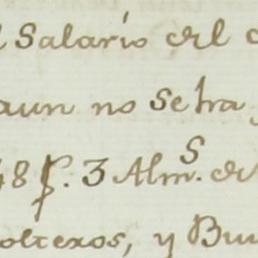 Salario del
aun no se ha
48 f. 3 Alm.s de
olteros, y Bu